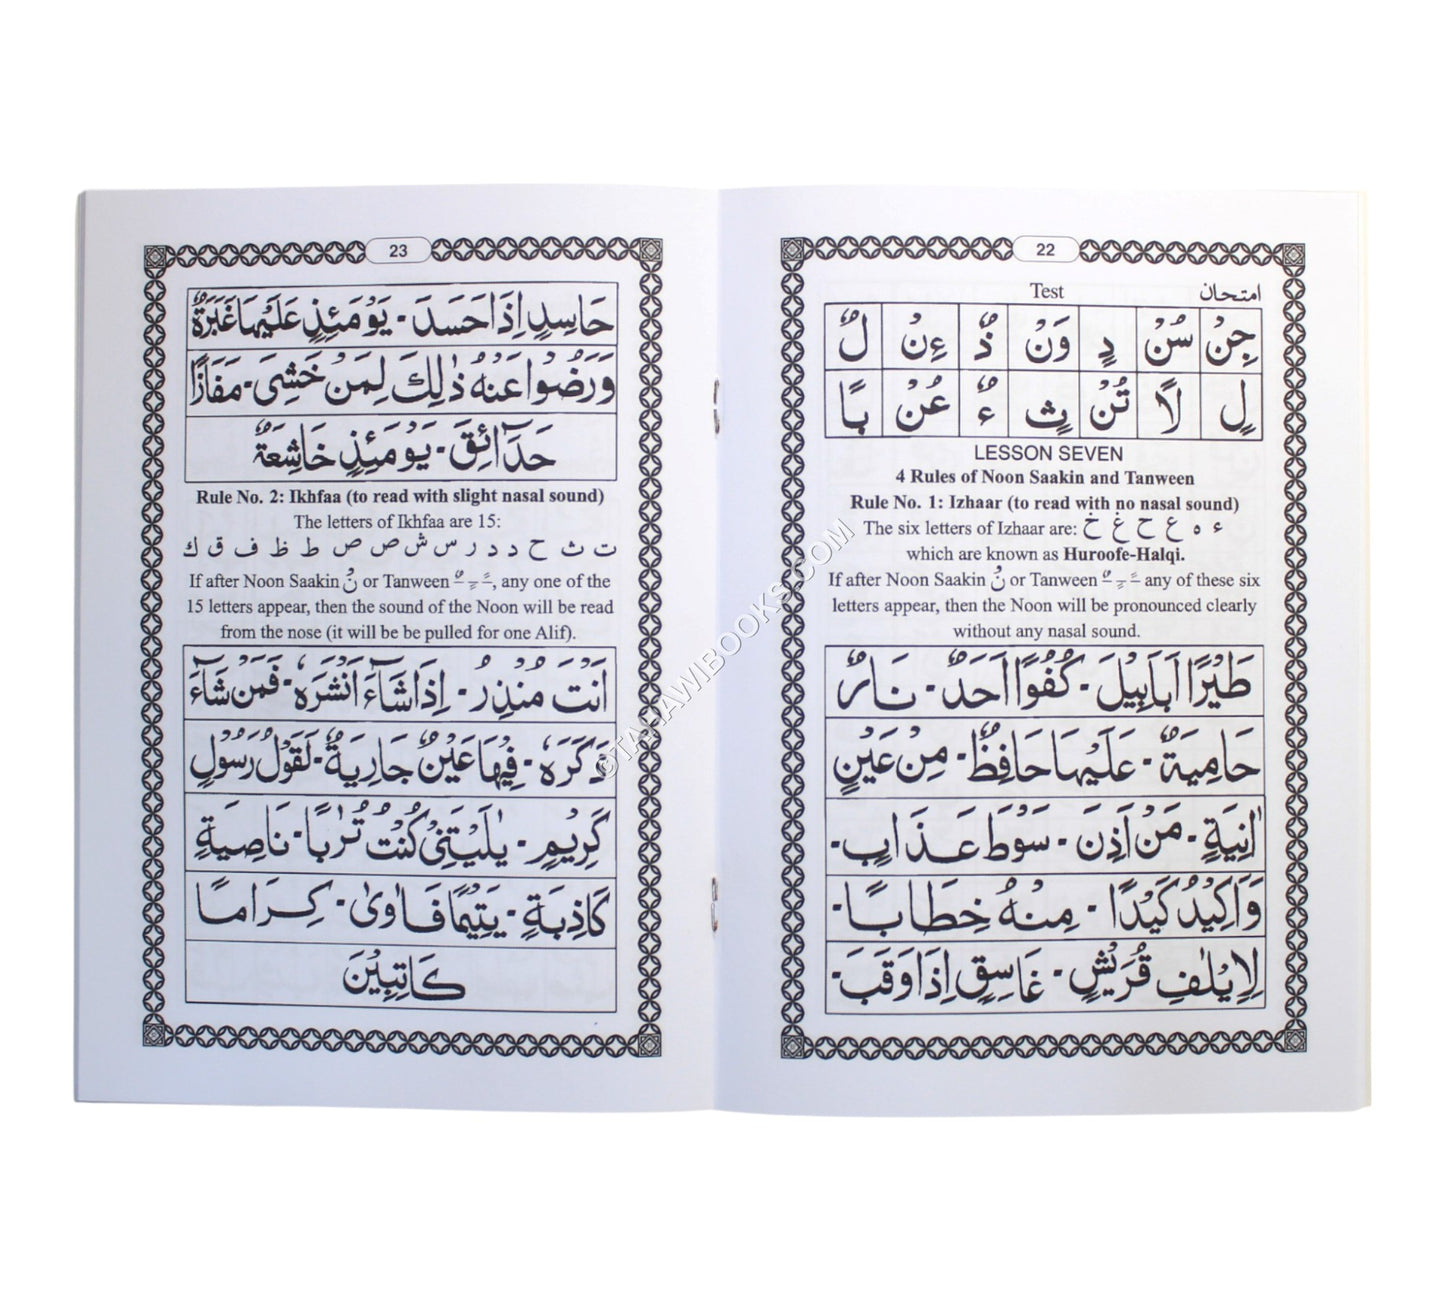 22
Test امتحان
جِنْ سُنْ دٍ وَنْ ذٌ ءِنْ لٌ
لٍ لًا تُنْ ثٍ ءٌ عُنْ بًا
LESSON SEVEN
4 Rules of Noon Saakin and Tanween
Rule No. 1: Izhaar (to read with no nasal sound)
The six letters of Izhaar are: ء ه ع ح غ خ
which are known as Huroofe-Halqi.
If after Noon Saakin نْ or Tanween ـًـ ـٍـ ـٌـ any of these six
letters appear, then the Noon will be pronounced clearly
without any nasal sound.
طَيْرًا اَبَابِيْلَ - كُفُوًا اَحَدٌ - نَارٌ
حَامِيَةٌ - عَلَيْهَا حَافِظٌ - مِنْ عَيْنٍ
اٰنِيَةٍ - مَنْ اَذِنَ - سَوْطَ عَذَابٍ -
وَاَكِيْدُ كَيْدًا - مِنْهُ خِطَابًا -
لِاِيْلٰفِ قُرَيْشٍ - غَاسِقٍ اِذَا وَقَبَ -
23
حَاسِدٍ اِذَا حَسَدَ - يَوْمَئِذٍ عَلَيْهَا غَبَرَةٌ
وَرَضُوْا عَنْهُ ذٰلِكَ لِمَنْ خَشِىَ - مَفَازًا
حَدَآئِقَ - يَوْمَئِذٍ خَاشِعَةٌ
Rule No. 2: Ikhfaa (to read with slight nasal sound)
The letters of Ikhfaa are 15:
ت ث ح د د ر س ش ص ص ط ظ ف ق ك
If after Noon Saakin نْ or Tanween ـًـ ـٍـ ـٌـ, any one of the
15 letters appear, then the sound of the Noon will be read
from the nose (it will be be pulled for one Alif).
اَنْتَ مُنْذِرُ - اِذَا شَآءَ اَنْشَرَهٗ - فَمَنْ شَآءَ
ذَكَرَهٗ - فِيْهَا عَيْنٌ جَارِيَةٌ - لَقَوْلُ رَسُوْلٍ
كَرِيْمٍ - يٰلَيْتَنِىْ كُنْتُ تُرٰبًا - نَاصِيَةٍ
كَاذِبَةٍ - يَتِيْمًا فَاٰوٰى - كِرَامًا
كَاتِبِيْنَ
©TAHAWIBOOKS.COM